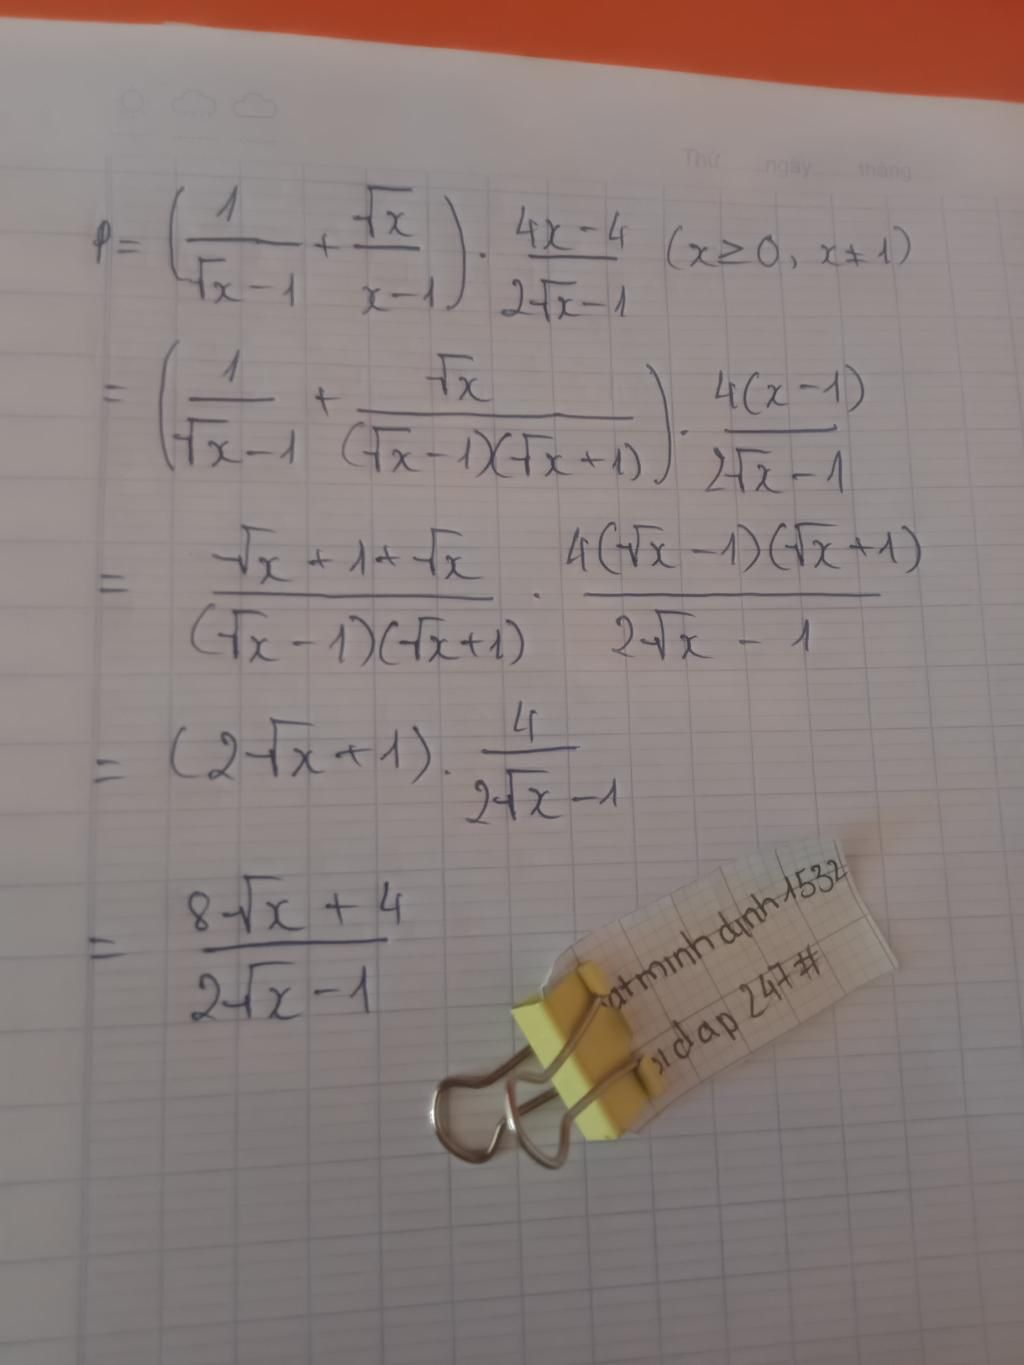 Thứ ngày tháng
P = (1/(√x - 1) + √x/(x - 1)) · (4x - 4)/(2√x - 1) (x ≥ 0, x ≠ 1)
= (1/(√x - 1) + √x/((√x - 1)(√x + 1))) · 4(x - 1)/(2√x - 1)
= (√x + 1 + √x)/((√x - 1)(√x + 1)) · 4(√x - 1)(√x + 1)/(2√x - 1)
= (2√x + 1) · 4/(2√x - 1)
= (8√x + 4)/(2√x - 1)
atminhdịnh1532
dap 247#